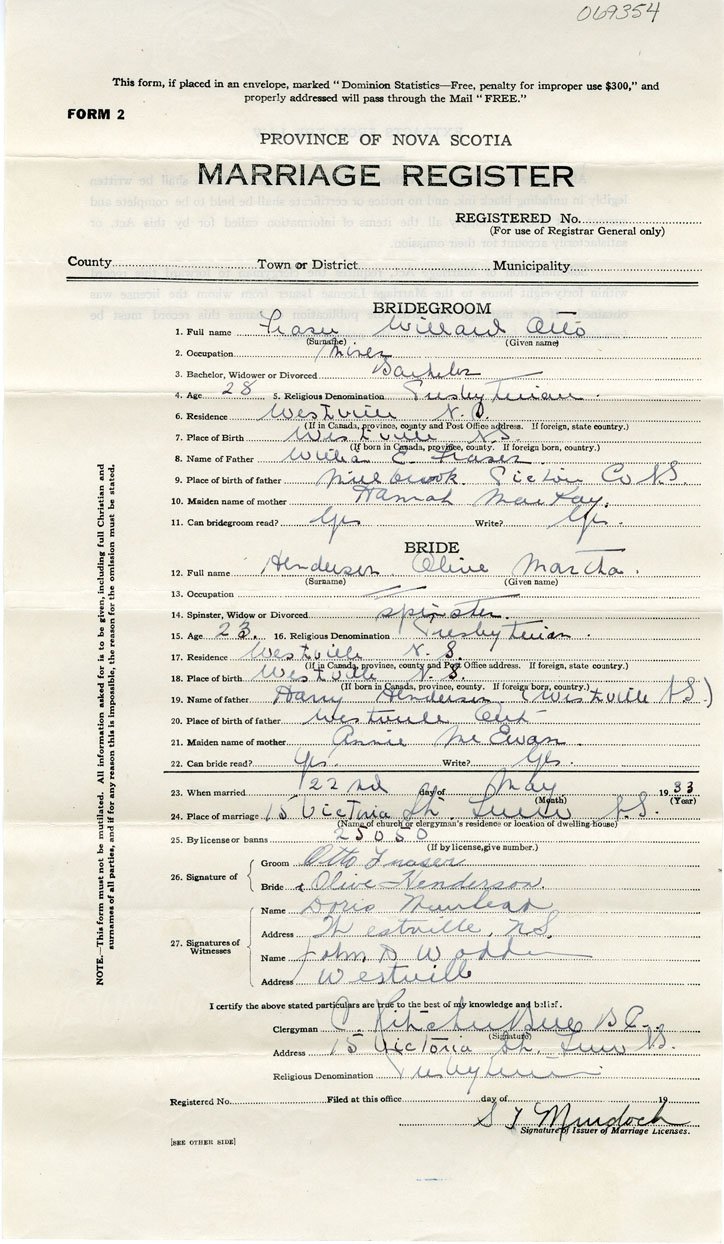 069354
This form, if placed in an envelope, marked "Dominion Statistics—Free, penalty for improper use $300," and
properly addressed will pass through the Mail "FREE."
FORM 2
PROVINCE OF NOVA SCOTIA
MARRIAGE REGISTER
REGISTERED No.
(For use of Registrar General only)
County Town or District Municipality
BRIDEGROOM
1. Full name Fraser Willard Otto
(Surname) (Given name)
2. Occupation Miner
3. Bachelor, Widower or Divorced Bachelor
4. Age 28 5. Religious Denomination Presbyterian
6. Residence Westville N.S.
(If in Canada, province, county and Post Office address. If foreign, state country.)
7. Place of Birth Westville N.S.
(If born in Canada, province, county. If foreign born, country.)
8. Name of Father William E. Fraser
9. Place of birth of father Millbrook Pictou Co N.S.
10. Maiden name of mother Hannah MacKay
11. Can bridegroom read? Yes Write? Yes.
BRIDE
12. Full name Henderson Olive Martha.
(Surname) (Given name)
13. Occupation
14. Spinster, Widow or Divorced Spinster.
15. Age 23. 16. Religious Denomination Presbyterian
17. Residence Westville N.S.
(If in Canada, province, county and Post Office address. If foreign, state country.)
18. Place of birth Westville N.S.
(If born in Canada, province, county. If foreign born, country.)
19. Name of father Harry Henderson (Westville N.S.)
20. Place of birth of father Westville
21. Maiden name of mother Annie McEwan
22. Can bride read? Yes. Write? Yes.
23. When married 22nd day of May 1933
(Month) (Year)
24. Place of marriage 15 Victoria St. Truro N.S.
(Name of church or clergyman's residence or location of dwelling-house)
25. By license or banns 25050
(If by license, give number.)
26. Signature of
Groom Otto Fraser
Bride Olive Henderson.
27. Signatures of Witnesses
Name Doris Muirhead
Address Westville, N.S.
Name John D
Address Westville
I certify the above stated particulars are true to the best of my knowledge and belief.
Clergyman
(Signature)
Address 15 Victoria St. Truro N.S.
Religious Denomination Presbyterian
Registered No. Filed at this office day of 19
S J Murdoch
Signature of Issuer of Marriage Licenses.
[SEE OTHER SIDE]
NOTE.—This form must not be mutilated. All information asked for is to be given, including full Christian and
surnames of all parties, and if for any reason this is impossible, the reason for the omission must be stated.